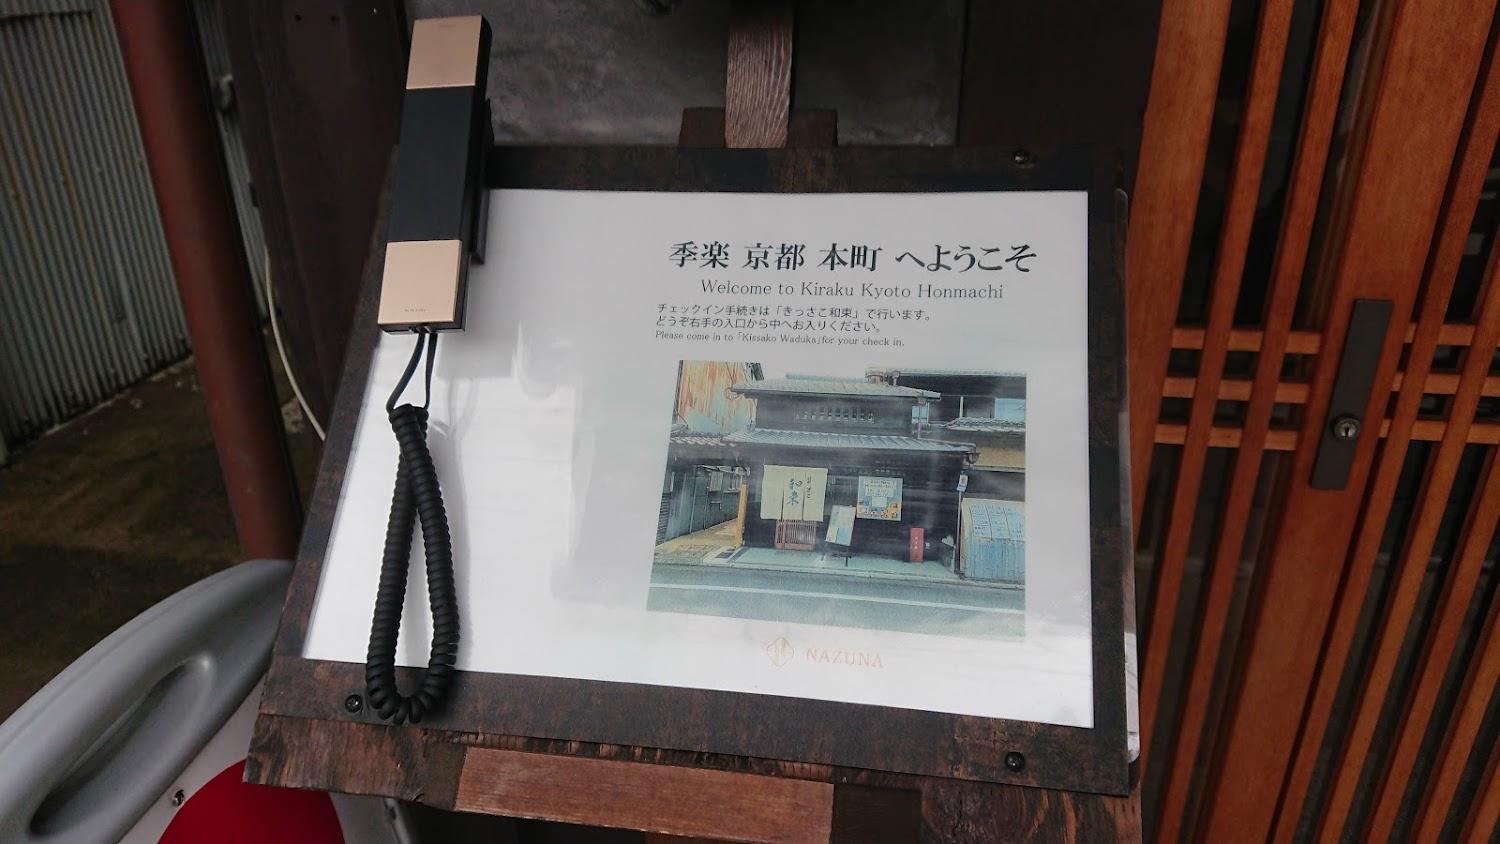 季楽 京都 本町 へようこそ
Welcome to Kiraku Kyoto Honmachi
チェックイン手続きは「きっさこ和束」で行います。
どうぞ右手の入口から中へお入りください。
Please come in to「Kissako Waduka」for your check in.
和束
NAZUNA